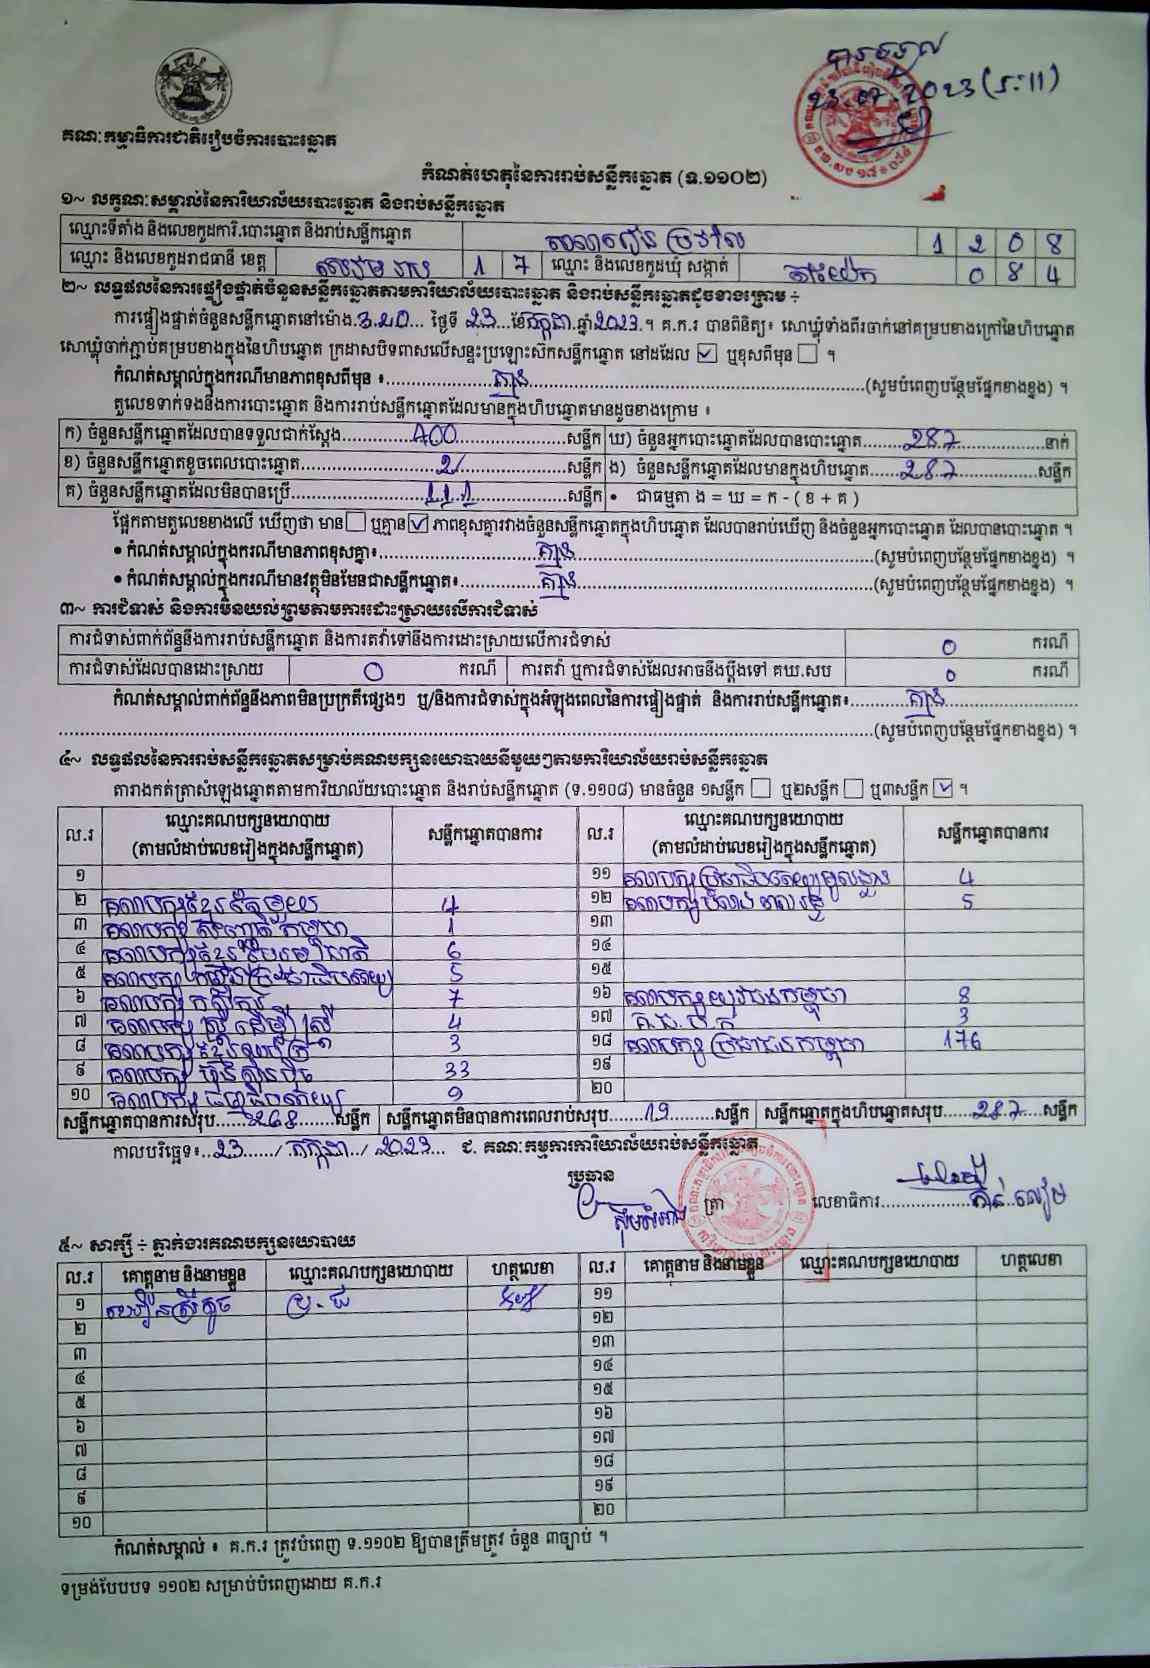 បានចូល
23.07.2023 (រ:11)
គណៈកម្មាធិការជាតិរៀបចំការបោះឆ្នោត
កំណត់ហេតុនៃការរាប់សន្លឹកឆ្នោត (ទ.១១០២)
១~ លក្ខណៈសម្គាល់នៃការិយាល័យបោះឆ្នោត និងរាប់សន្លឹកឆ្នោត
ឈ្មោះទីតាំង និងលេខកូដការិ.បោះឆ្នោត និងរាប់សន្លឹកឆ្នោត សាលារៀន 1 2 0 8
ឈ្មោះ និងលេខកូដរាជធានី ខេត្ត សៀមរាប 1 7 ឈ្មោះ និងលេខកូដឃុំ សង្កាត់ តាយ៉ែក 0 8 4
២~ លទ្ធផលនៃការផ្ទៀងផ្ទាត់ចំនួនសន្លឹកឆ្នោតតាមការិយាល័យបោះឆ្នោត និងរាប់សន្លឹកឆ្នោតដូចខាងក្រោម ÷
ការផ្ទៀងផ្ទាត់ចំនួនសន្លឹកឆ្នោតនៅម៉ោង.3.20... ថ្ងៃទី 23.ខែកក្កដា.ឆ្នាំ2023.។ គ.ក.រ បានពិនិត្យ៖ សោឃ្លុំទាំងពីរចាក់នៅគម្របខាងក្រៅនៃហិបឆ្នោត
សោឃ្លុំចាក់ភ្ជាប់គម្របខាងក្នុងនៃហិបឆ្នោត ក្រដាសបិទពាសលើសន្ទះប្រឡោះស៊កសន្លឹកឆ្នោត នៅដដែល ☑ ឬខុសពីមុន ☐ ។
កំណត់សម្គាល់ក្នុងករណីមានភាពខុសពីមុន ៖...គ្មាន...(សូមបំពេញបន្ថែមផ្នែកខាងខ្នង) ។
តួលេខទាក់ទងនឹងការបោះឆ្នោត និងការរាប់សន្លឹកឆ្នោតដែលមានក្នុងហិបឆ្នោតមានដូចខាងក្រោម ៖
ក) ចំនួនសន្លឹកឆ្នោតដែលបានទទួលជាក់ស្តែង...400...សន្លឹក ឃ) ចំនួនអ្នកបោះឆ្នោតដែលបានបោះឆ្នោត...287...នាក់
ខ) ចំនួនសន្លឹកឆ្នោតខូចពេលបោះឆ្នោត...2...សន្លឹក ង) ចំនួនសន្លឹកឆ្នោតដែលមានក្នុងហិបឆ្នោត...287...សន្លឹក
គ) ចំនួនសន្លឹកឆ្នោតដែលមិនបានប្រើ...111...សន្លឹក • ជាធម្មតា ង = ឃ = ក - ( ខ + គ )
ផ្អែកតាមតួលេខខាងលើ ឃើញថា មាន ☐ ឬគ្មាន ☑ ភាពខុសគ្នារវាងចំនួនសន្លឹកឆ្នោតក្នុងហិបឆ្នោត ដែលបានរាប់ឃើញ និងចំនួនអ្នកបោះឆ្នោត ដែលបានបោះឆ្នោត ។
• កំណត់សម្គាល់ក្នុងករណីមានភាពខុសគ្នា៖...គ្មាន...(សូមបំពេញបន្ថែមផ្នែកខាងខ្នង) ។
• កំណត់សម្គាល់ក្នុងករណីមានវត្ថុមិនមែនជាសន្លឹកឆ្នោត៖...គ្មាន...(សូមបំពេញបន្ថែមផ្នែកខាងខ្នង) ។
៣~ ការជំទាស់ និងការមិនយល់ព្រមតាមការដោះស្រាយលើការជំទាស់
ការជំទាស់ពាក់ព័ន្ធនឹងការរាប់សន្លឹកឆ្នោត និងការតវ៉ាទៅនឹងការដោះស្រាយលើការជំទាស់ 0 ករណី
ការជំទាស់ដែលបានដោះស្រាយ 0 ករណី ការតវ៉ា ឬការជំទាស់ដែលអាចនឹងប្តឹងទៅ គឃ.សប 0 ករណី
កំណត់សម្គាល់ពាក់ព័ន្ធនឹងភាពមិនប្រក្រតីផ្សេងៗ ឬ/និងការជំទាស់ក្នុងអំឡុងពេលនៃការផ្ទៀងផ្ទាត់ និងការរាប់សន្លឹកឆ្នោត៖...គ្មាន...
...(សូមបំពេញបន្ថែមផ្នែកខាងខ្នង) ។
៤~ លទ្ធផលនៃការរាប់សន្លឹកឆ្នោតសម្រាប់គណបក្សនយោបាយនីមួយៗតាមការិយាល័យរាប់សន្លឹកឆ្នោត
តារាងកត់ត្រាសំឡេងឆ្នោតតាមការិយាល័យបោះឆ្នោត និងរាប់សន្លឹកឆ្នោត (ទ.១១០៨) មានចំនួន ១សន្លឹក ☐ ឬ២សន្លឹក ☐ ឬ៣សន្លឹក ☑ ។
ល.រ ឈ្មោះគណបក្សនយោបាយ (តាមលំដាប់លេខរៀងក្នុងសន្លឹកឆ្នោត) សន្លឹកឆ្នោតបានការ ល.រ ឈ្មោះគណបក្សនយោបាយ (តាមលំដាប់លេខរៀងក្នុងសន្លឹកឆ្នោត) សន្លឹកឆ្នោតបានការ
១ ១១ គណបក្សប្រជាធិបតេយ្យមូលដ្ឋាន 4
២ គណបក្សខ្មែររួបរួម 4 ១២ គណបក្ស 5
៣ គណបក្ស កម្ពុជា 1 ១៣
៤ គណបក្សខ្មែរ ជាតិ 6 ១៤
៥ គណបក្ស ប្រជាធិបតេយ្យ 5 ១៥
៦ គណបក្ស កសិករ 7 ១៦ គណបក្សយុវជនកម្ពុជា 8
៧ គណបក្ស ស្ត្រីដើម្បីស្ត្រី 4 ១៧ គ.ប.ក 3
៨ គណបក្ស 3 ១៨ គណបក្សប្រជាជនកម្ពុជា 176
៩ គណបក្ស ហ៊្វុនស៊ិនប៉ិច 33 ១៩
១០ គណបក្ស ធម្មាធិបតេយ្យ 9 ២០
សន្លឹកឆ្នោតបានការសរុប...268...សន្លឹក សន្លឹកឆ្នោតមិនបានការពេលរាប់សរុប...19...សន្លឹក សន្លឹកឆ្នោតក្នុងហិបឆ្នោតសរុប...287...សន្លឹក
កាលបរិច្ឆេទ៖..23..../ កក្កដា / 2023... ជ. គណៈកម្មការការិយាល័យរាប់សន្លឹកឆ្នោត
ប្រធាន
ត្រា លេខាធិការ
៥~ សាក្សី ÷ ភ្នាក់ងារគណបក្សនយោបាយ
ល.រ គោត្តនាម និងនាមខ្លួន ឈ្មោះគណបក្សនយោបាយ ហត្ថលេខា ល.រ គោត្តនាម និងនាមខ្លួន ឈ្មោះគណបក្សនយោបាយ ហត្ថលេខា
១ ប្រ.ជ ១១
២ ១២
៣ ១៣
៤ ១៤
៥ ១៥
៦ ១៦
៧ ១៧
៨ ១៨
៩ ១៩
១០ ២០
កំណត់សម្គាល់ ៖ គ.ក.រ ត្រូវបំពេញ ទ.១១០២ ឱ្យបានត្រឹមត្រូវ ចំនួន ៣ច្បាប់ ។
ទម្រង់បែបបទ ១១០២ សម្រាប់បំពេញដោយ គ.ក.រ